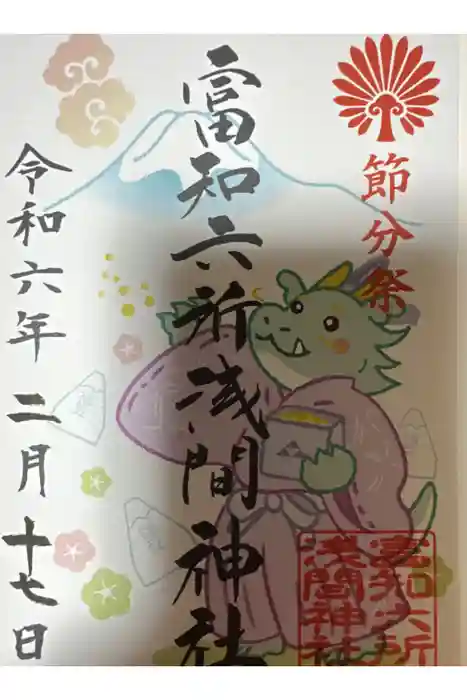 節分祭
富知六所浅間神社
令和六年二月十七日
富知六所
浅間神社